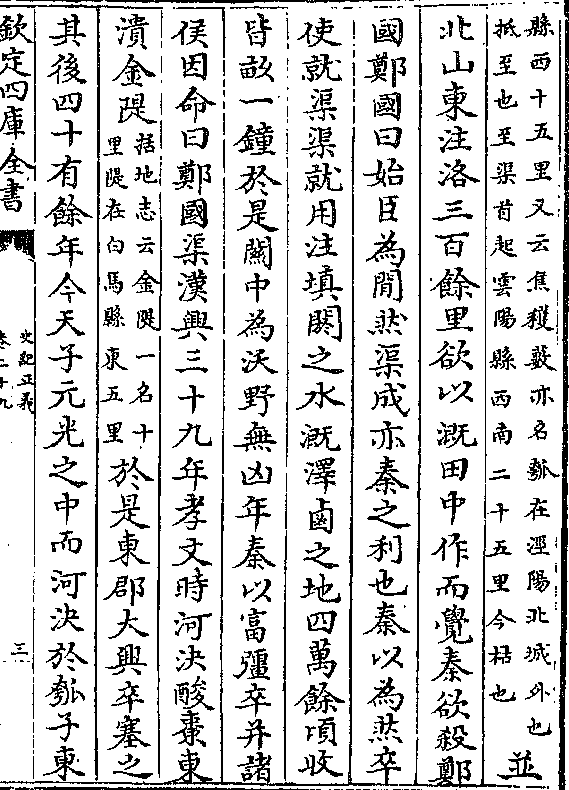 縣西十五里又云焦穫藪亦名瓠在涇陽北城外也
抵至也至渠首起雲陽縣西南二十五里今枯也
並
北山東注洛三百餘里欲以溉田中作而覺秦欲殺鄭
國鄭國曰始臣為間然渠成亦秦之利也秦以為然卒
使就渠渠就用注填閼之水溉澤鹵之地四萬餘頃收
皆畝一鐘於是關中為沃野無凶年秦以富彊卒并諸
侯因命曰鄭國渠漢興三十九年孝文時河決酸棗東
潰金隄
括地志云金隄一名十
里隄在白馬縣東五里
於是東郡大興卒塞之
其後四十有餘年今天子元光之中而河決於瓠子東
欽定四庫全書
史記正義
卷二十九
三